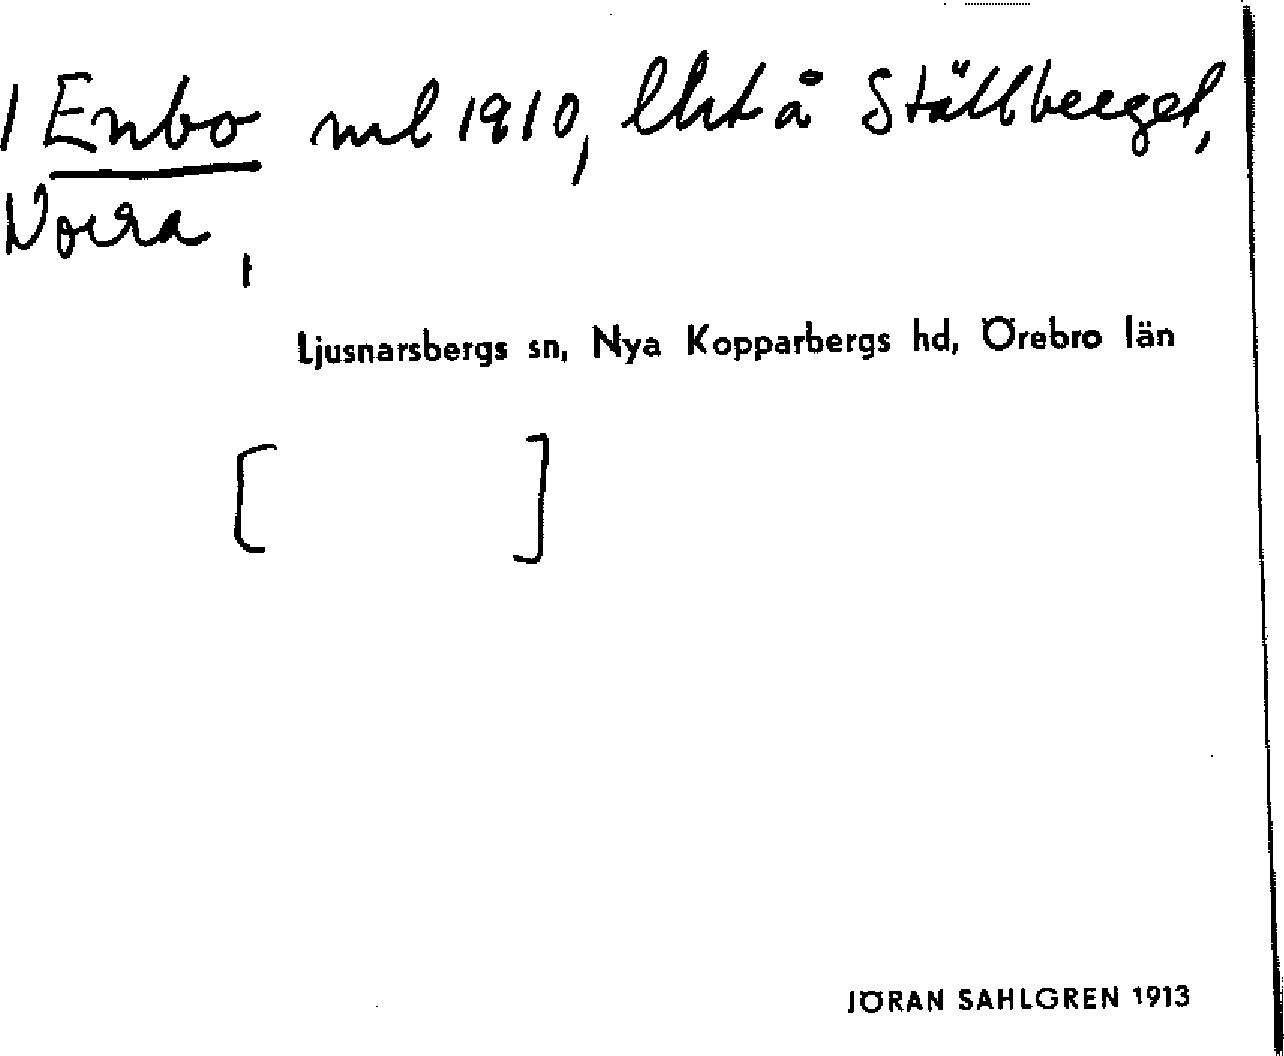 Enbo ml 1910, lht å Ställberget,
Norra,
Ljusnarsbergs sn, Nya Kopparbergs hd, Örebro län
[ ]
JÖRAN SAHLGREN 1913